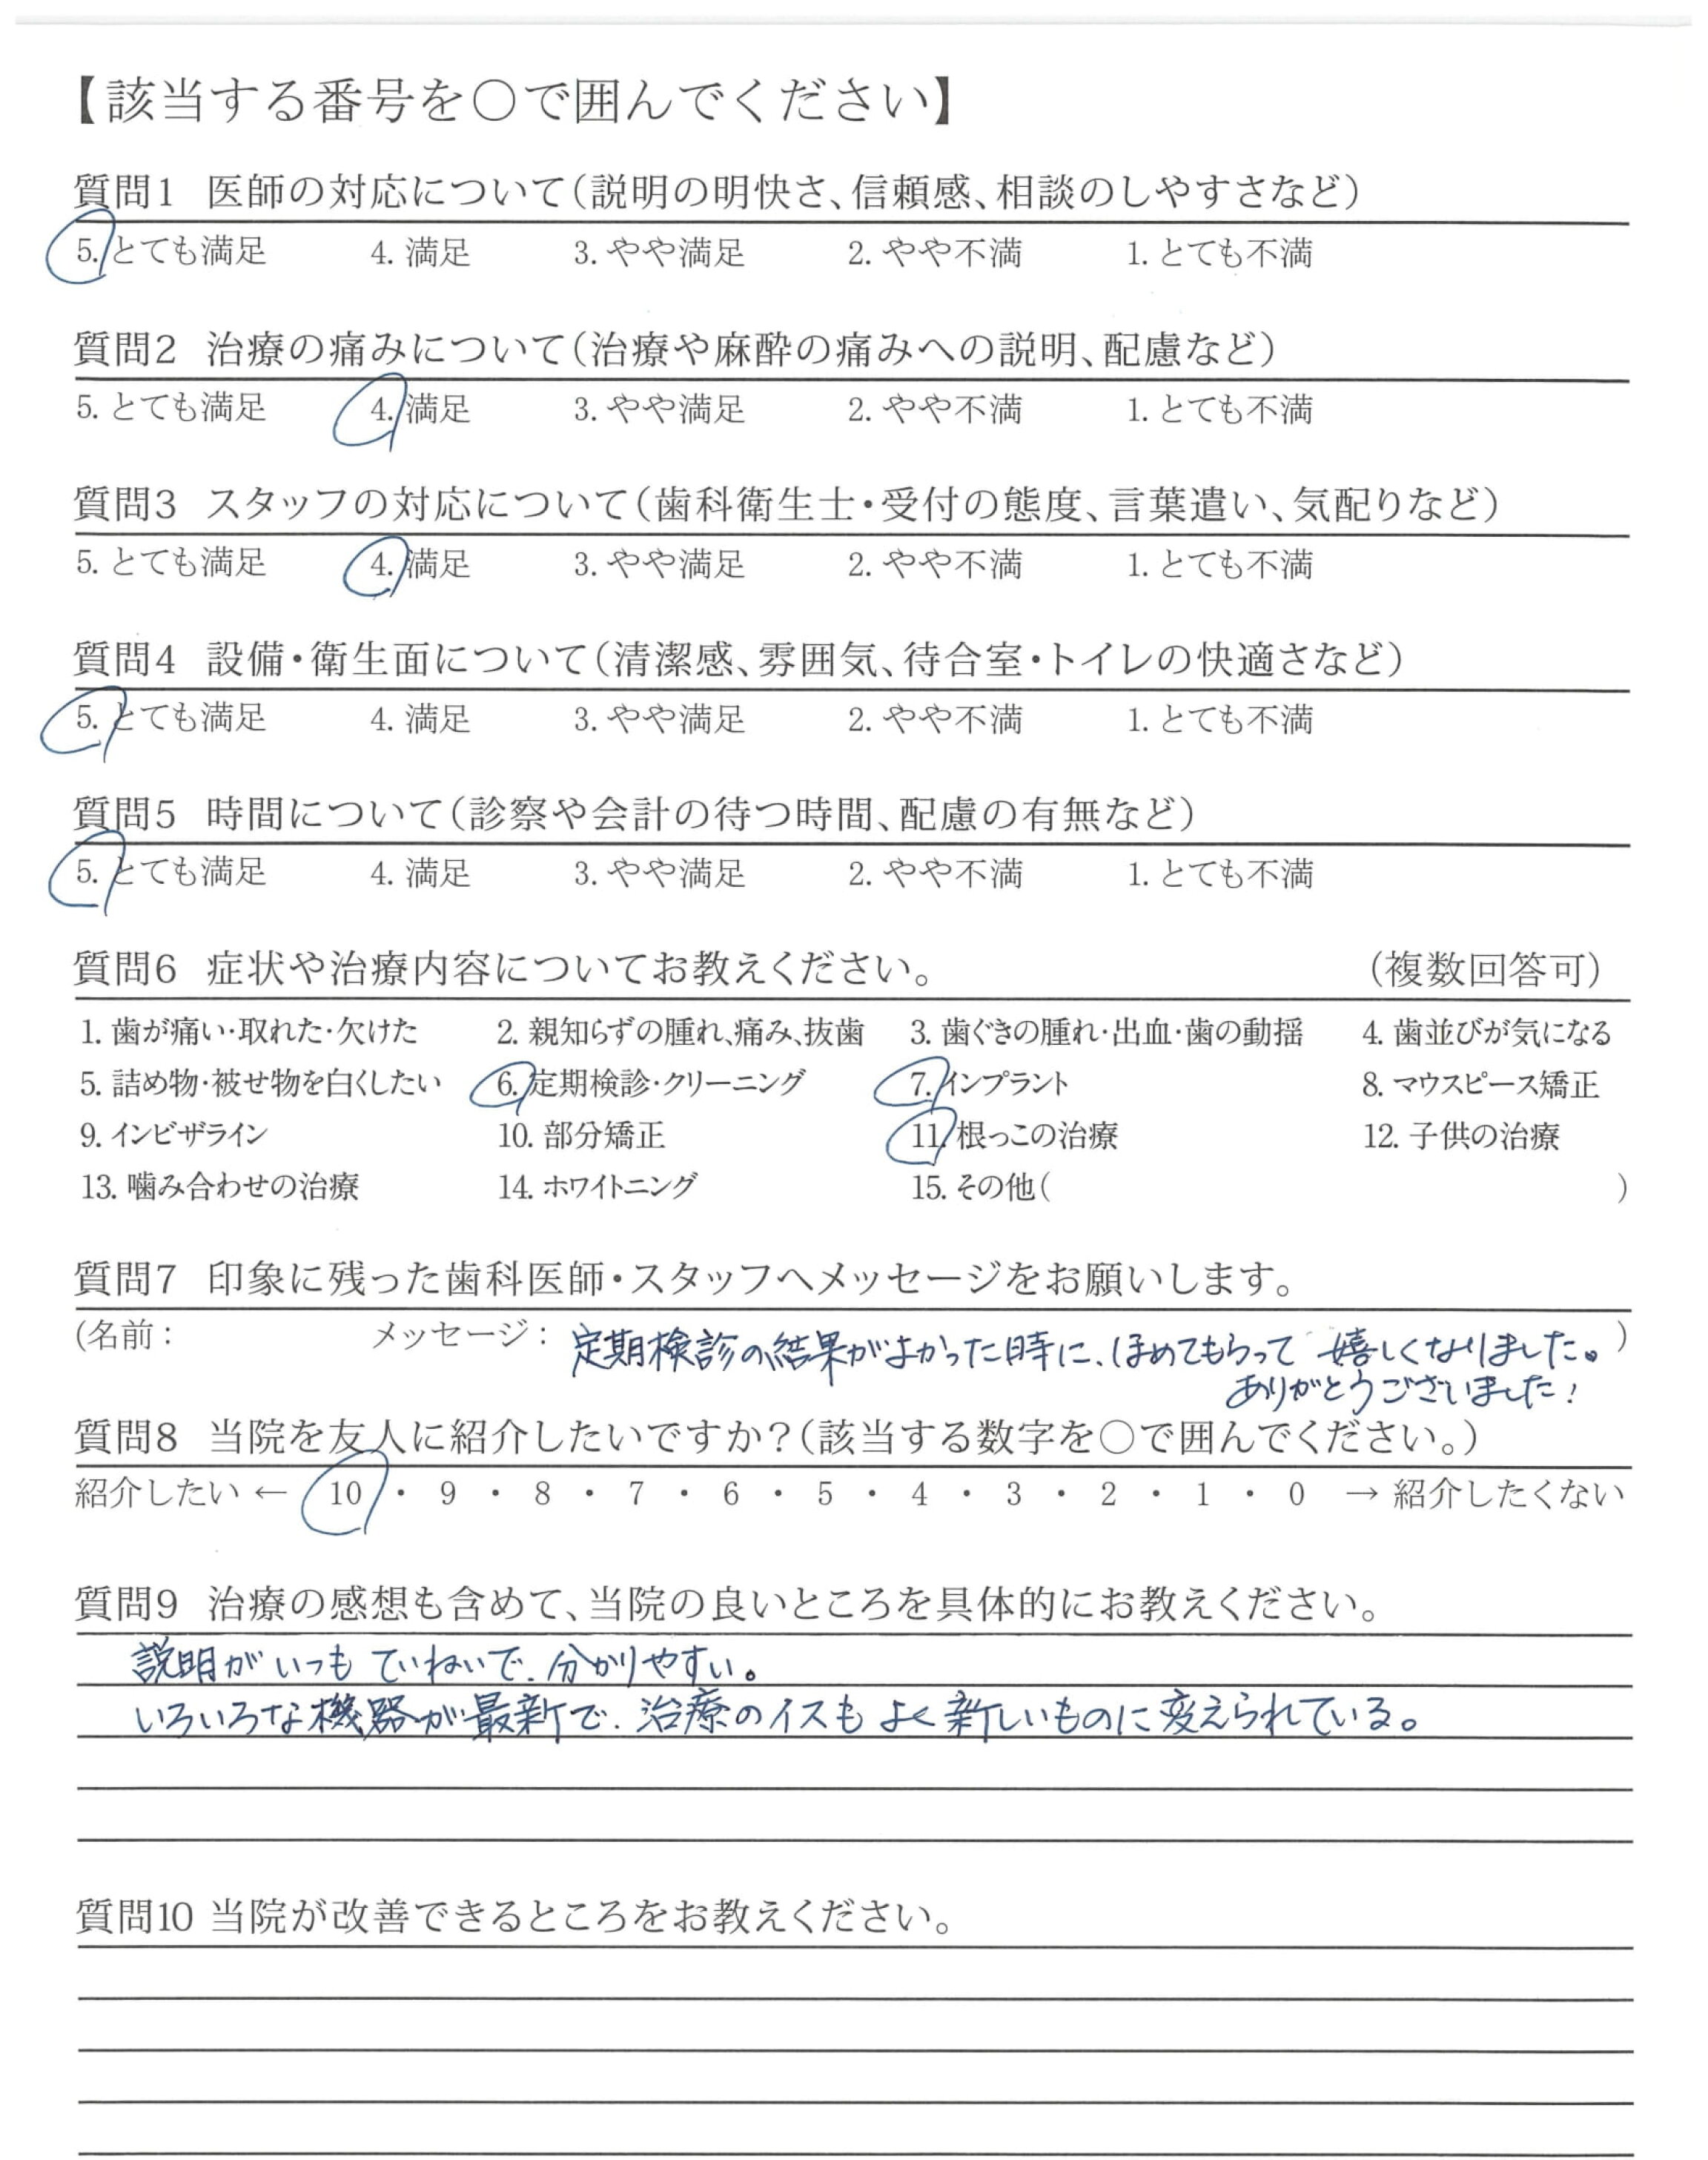 【該当する番号を〇で囲んでください】
質問1 医師の対応について(説明の明快さ、信頼感、相談のしやすさなど)
5. とても満足 4. 満足 3. やや満足 2. やや不満 1. とても不満
質問2 治療の痛みについて(治療や麻酔の痛みへの説明、配慮など)
5. とても満足 4. 満足 3. やや満足 2. やや不満 1. とても不満
質問3 スタッフの対応について(歯科衛生士・受付の態度、言葉遣い、気配りなど)
5. とても満足 4. 満足 3. やや満足 2. やや不満 1. とても不満
質問4 設備・衛生面について(清潔感、雰囲気、待合室・トイレの快適さなど)
5. とても満足 4. 満足 3. やや満足 2. やや不満 1. とても不満
質問5 時間について(診察や会計の待つ時間、配慮の有無など)
5. とても満足 4. 満足 3. やや満足 2. やや不満 1. とても不満
質問6 症状や治療内容についてお教えください。 (複数回答可)
1. 歯が痛い・取れた・欠けた 2. 親知らずの腫れ、痛み、抜歯 3. 歯ぐきの腫れ・出血・歯の動揺 4. 歯並びが気になる
5. 詰め物・被せ物を白くしたい 6. 定期検診・クリーニング 7. インプラント 8. マウスピース矯正
9. インビザライン 10. 部分矯正 11. 根っこの治療 12. 子供の治療
13. 噛み合わせの治療 14. ホワイトニング 15. その他( )
質問7 印象に残った歯科医師・スタッフへメッセージをお願いします。
(名前: メッセージ: 定期検診の結果がよかった時に、ほめてもらって 嬉しくなりました。)
ありがとうございました!
質問8 当院を友人に紹介したいですか?(該当する数字を〇で囲んでください。)
紹介したい ← 10 ・ 9 ・ 8 ・ 7 ・ 6 ・ 5 ・ 4 ・ 3 ・ 2 ・ 1 ・ 0 → 紹介したくない
質問9 治療の感想も含めて、当院の良いところを具体的にお教えください。
説明がいつも ていねいで、分かりやすい。
いろいろな機器が最新で、治療のイスも よく新しいものに変えられている。
質問10 当院が改善できるところをお教えください。